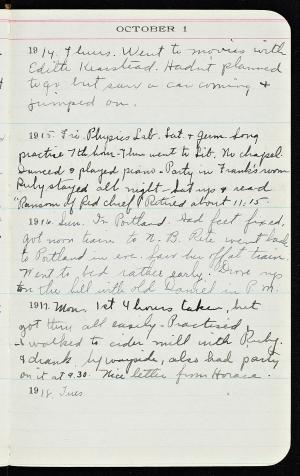 OCTOBER 1
1914. Thurs. Went to movies with
Edith Kearstead. Hadn't planned
to go, but saw a car coming &
jumped on.
1915. Fri. Physics Lab. Lat. & Germ. Song
practice 7th hour - Then went to Lit. No chapel.
Danced & played piano - Party in Frank's room
Ruby stayed all night - Sat up & read
"Ransom of Red Chief" Retired about 11.15.
1916. Sun. In Portland. Had feet fixed,
got noon train to N. B. Rite went back
to Portland in eve. Saw her off at train.
Went to bed rather early. Drove up
on the hill with old Daniel in P.M.
1917. Mon. 1st 4 hours taken, but
got thru all easily - Practised,
walked to cider mill with Ruby.
& drank by wayside, also had party
on it at 9.30. Nice letter from Horace.
1918. Tues.